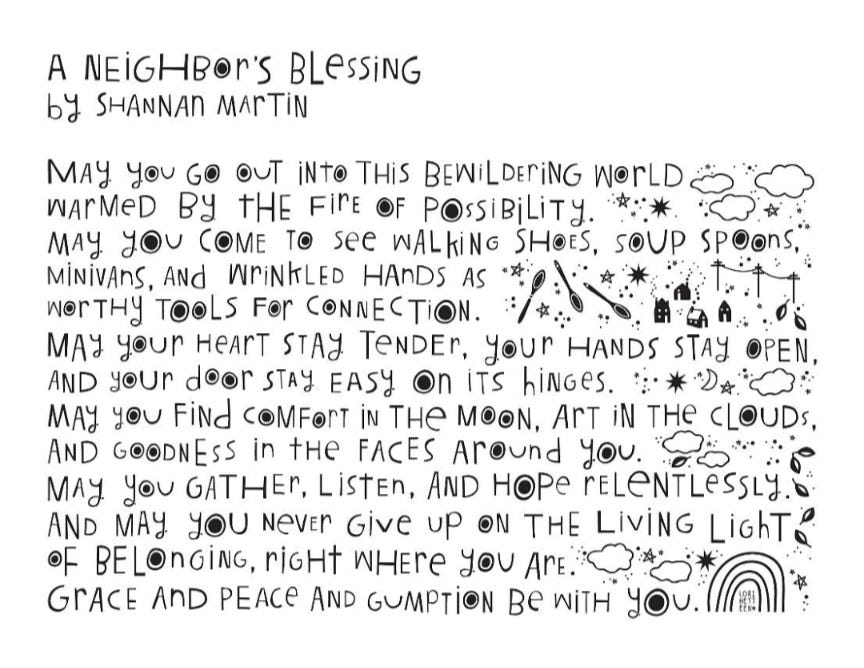 A NEiGHBOr'S BLessiNG
by SHANNAN MARTIN
MAY You GO OUT iNTO THiS BEWiLDEriNG WOrLD
WArMeD BY tHE FirE OF POSSiBiLiTY.
MAY YOU COME TO see WALkiNG SHOES, SOUP SPOOns,
MiNiVAns, ANd WriNkLED HANDS AS
WOrTHY TOOLS FOr CONNECTiON.
MAY YOUr HeArT STAY TeNDEr, YOUr HANDS STAY OPEN,
AND YOUr dOOr STAY EASY On iTS hiNGES.
MAY YOU FiNd COMFOrT iN THe MOON, ArT iN THe CLOUDS,
AND GOODNEss in tHe FACES Around YOU.
MAY YOU GATHEr, LisTEN, AND HOPe rELENTLessLY.
AND MAY YOU NevEr Give UP ON THE LiviNG LiGhT
OF BELOnGiNG, riGHT WHEre YOU ArE.
GrACE AnD PEACe AND GUMPTiON Be WiTH YOU.
LORI
HETT
EEN